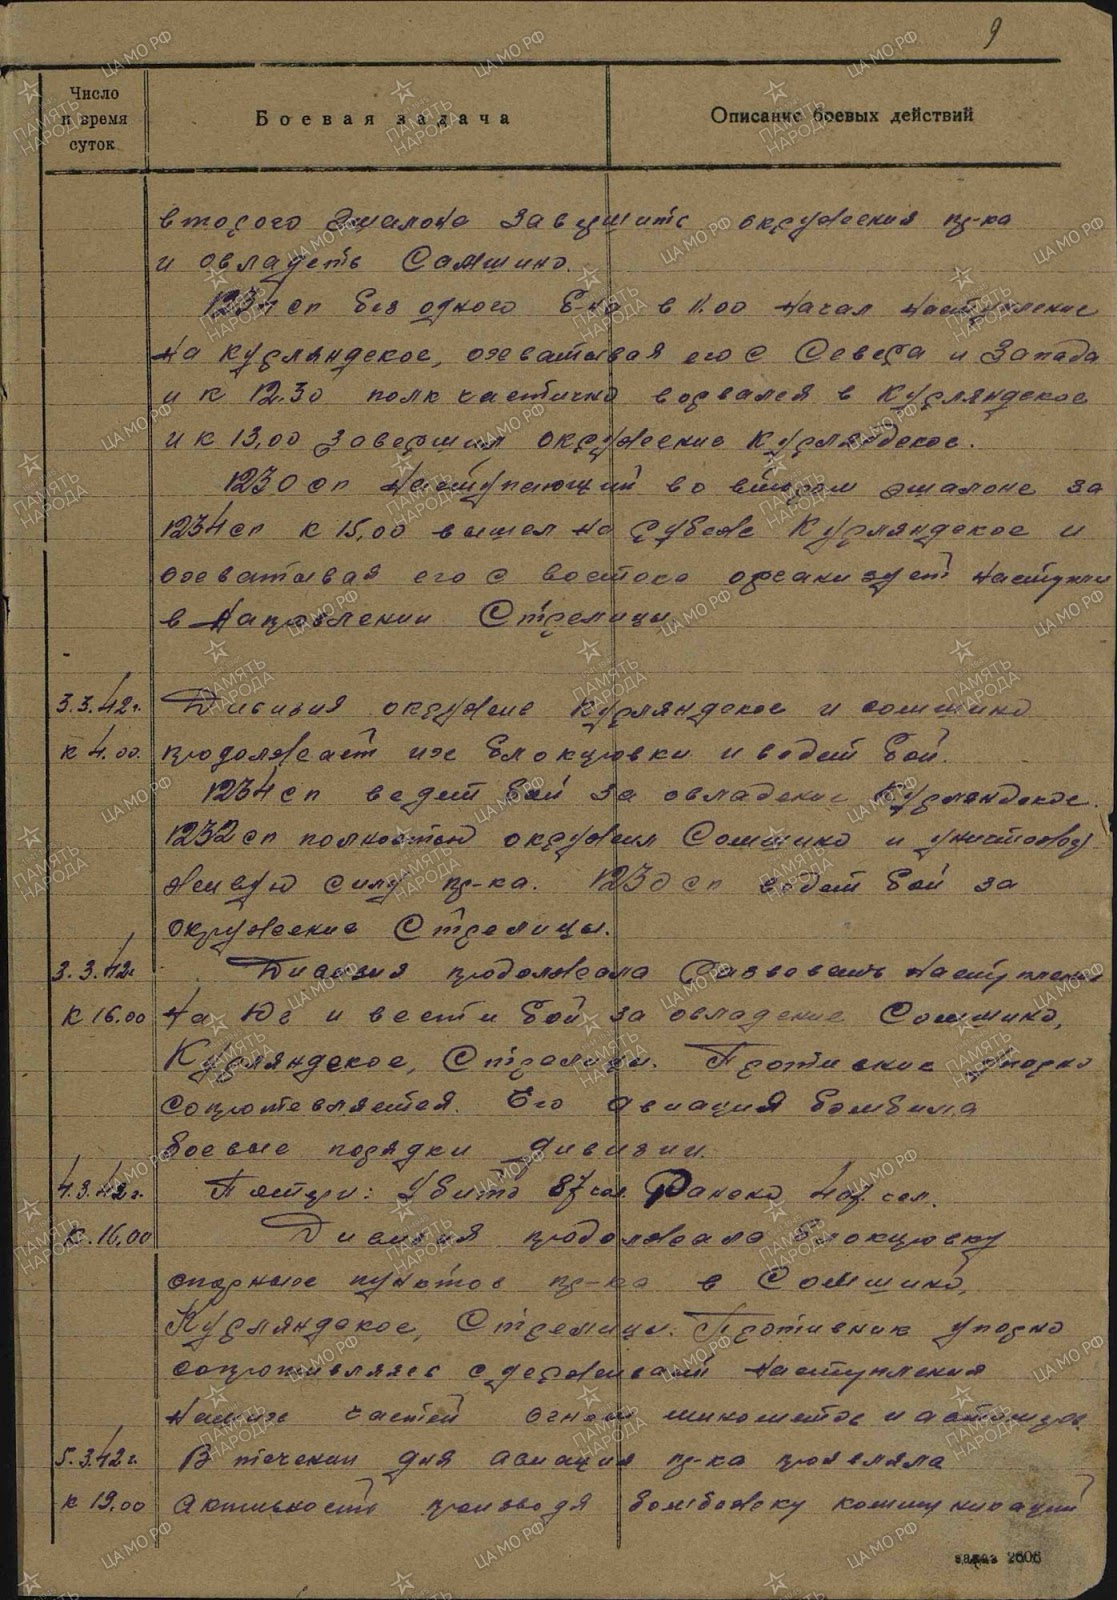 9
Число
и время
суток
Боевая задача
Описание боевых действий
второго эшалона завершить окружения пр-ка
и овладеть Сомшино.
1234 сп без одного б-на в 11.00 начал наступление
на Курляндское, охватывая его с Севера и Запада
и к 12.30 полк частично ворвался в Курляндское
и к 13.00 завершил окружение Курляндское.
1230 сп наступающий во втором эшалоне за
1234 сп к 15.00 вышел на рубеж Курляндское и
охватывая его с востока организует наступл
в направлении Стрелицы
3.3.42г. Дивизия окружив Курляндское и Сомшино
к 4.00. продолжает их блокировки и ведет бой.
1234 сп ведет бой за овладение Курляндское.
1232 сп полностью окружил Сомшино и
живую силу пр-ка. 1230 сп ведет бой за
окружение Стрелицы.
3.3.42г Дивизия продолжала развивать наступление
к 16.00 на Юг и вести бой за овладение Сомшино,
Курляндское, Стрелицы. Противник упорно
сопротевляется. Его авиация бомбила
боевые порядки дивизии.
4.3.42г. Потери: Убито 87 чел. Ранено 407 чел.
к. 16.00 Дивизия продолжала блокировку
опорных пунктов пр-ка в Сомшино,
Курляндское, Стрелицы. Противник упорно
сопротивляясь сдерживает наступления
наших частей огнем минометов и
5.3.42г. В течении дня авиация пр-ка проявляла
к 19.00 активность производя бомбежку коммуникаций
заказ 2606